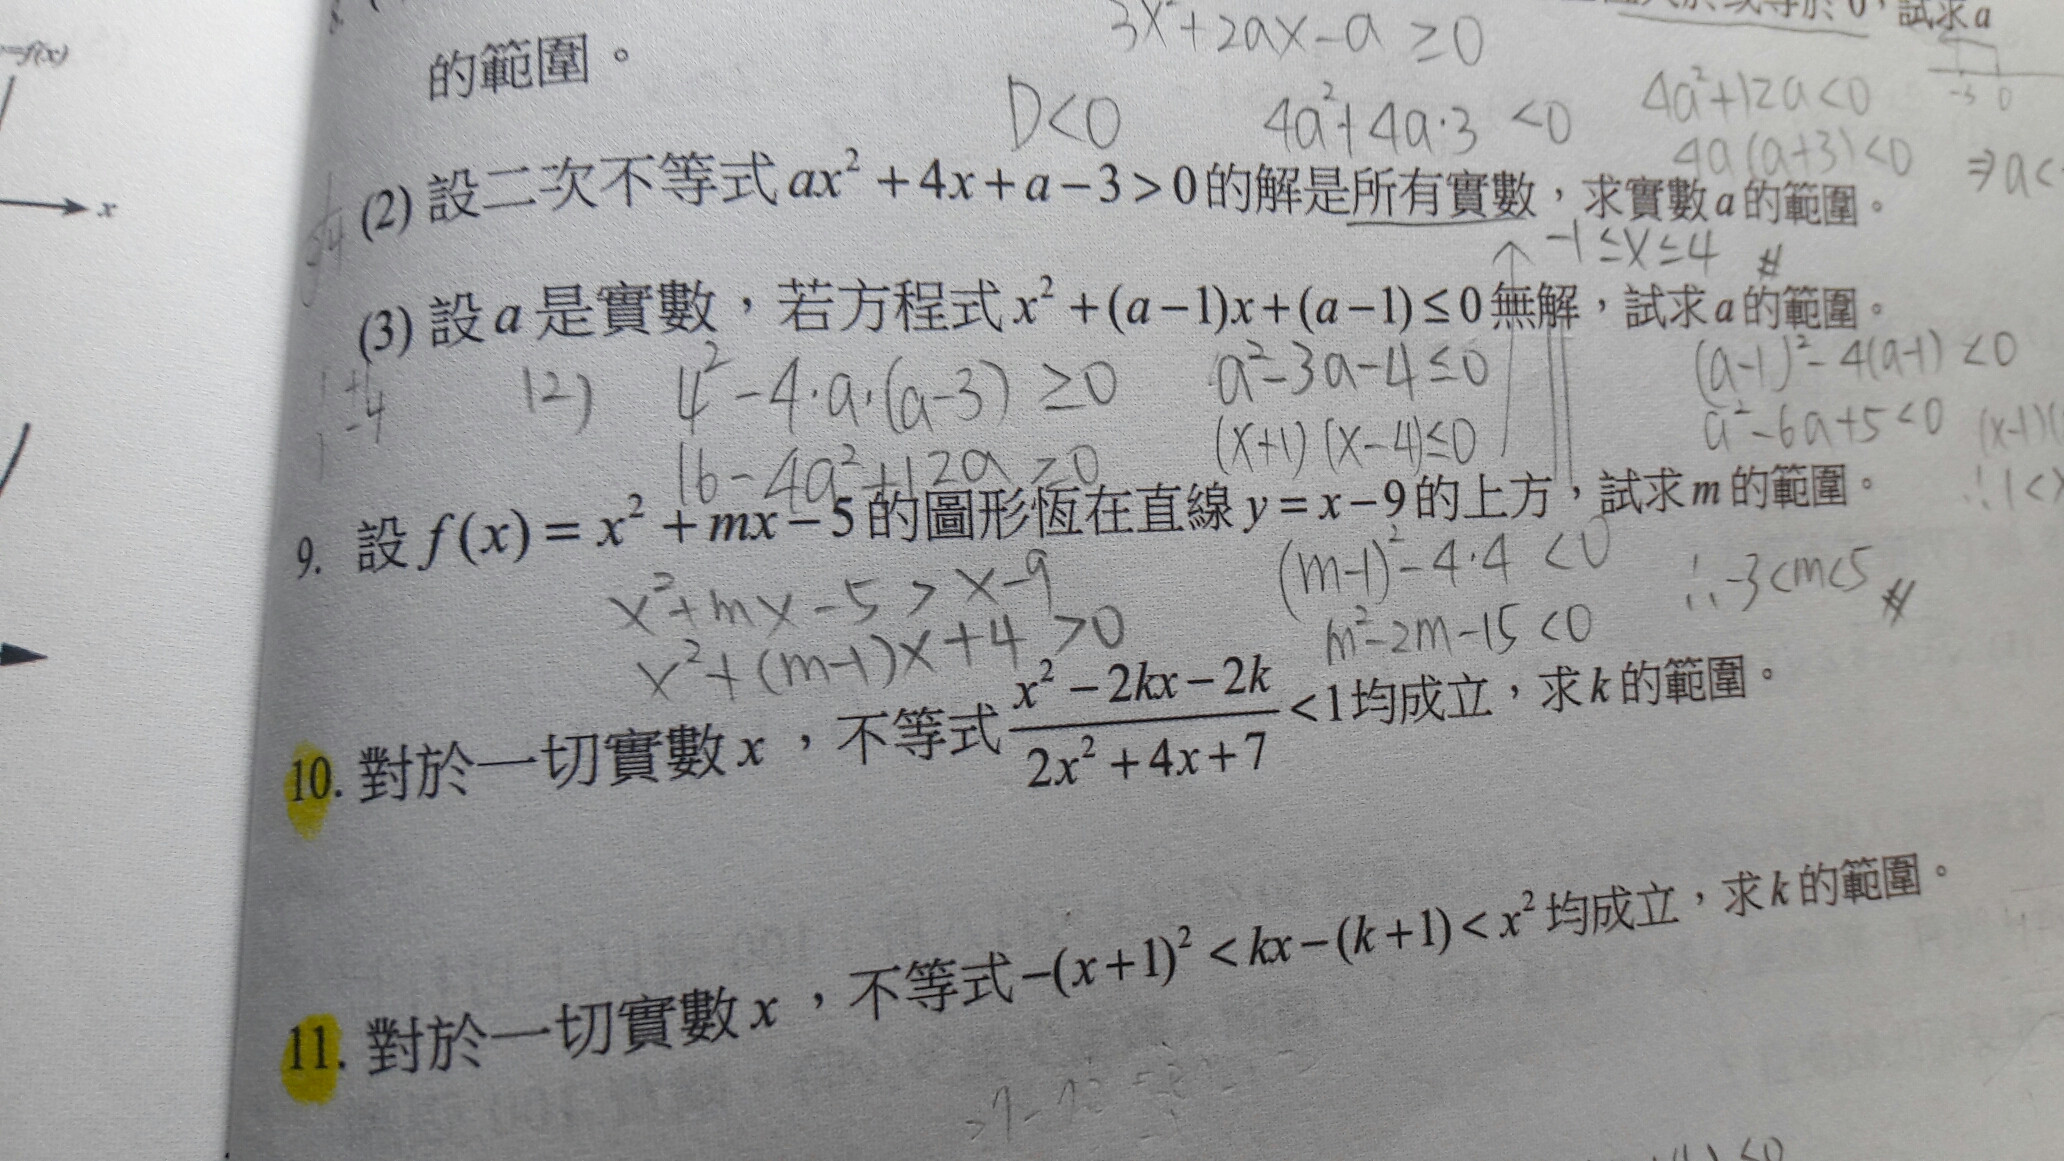 =f(x)
3x²+2ax-a ≥0
試求a
的範圍。
D<0 4a²+4a·3 <0 4a²+12a<0
-3 0
4a(a+3)<0 ⇒a<
(2) 設二次不等式ax²+4x+a-3>0的解是所有實數,求實數a的範圍。
-1≤x≤4 #
x
(3) 設a是實數,若方程式x²+(a-1)x+(a-1)≤0無解,試求a的範圍。
(2) 4²-4·a·(a-3) ≥0 a²-3a-4≤0 (a-1)²-4(a-1)<0
1 +1
1 -4
16-4a²+12a≥0 (x+1)(x-4)≤0 a²-6a+5<0 (x-1)(
9. 設f(x)=x²+mx-5的圖形恆在直線y=x-9的上方,試求m的範圍。
∴1<x
x²+mx-5>x-9 (m-1)²-4·4<0 ∴-3<m<5 #
x²+(m-1)x+4>0 m²-2m-15<0
10. 對於一切實數x,不等式(x²-2kx-2k)/(2x²+4x+7)<1均成立,求k的範圍。
11. 對於一切實數x,不等式-(x+1)²<kx-(k+1)<x²均成立,求k的範圍。